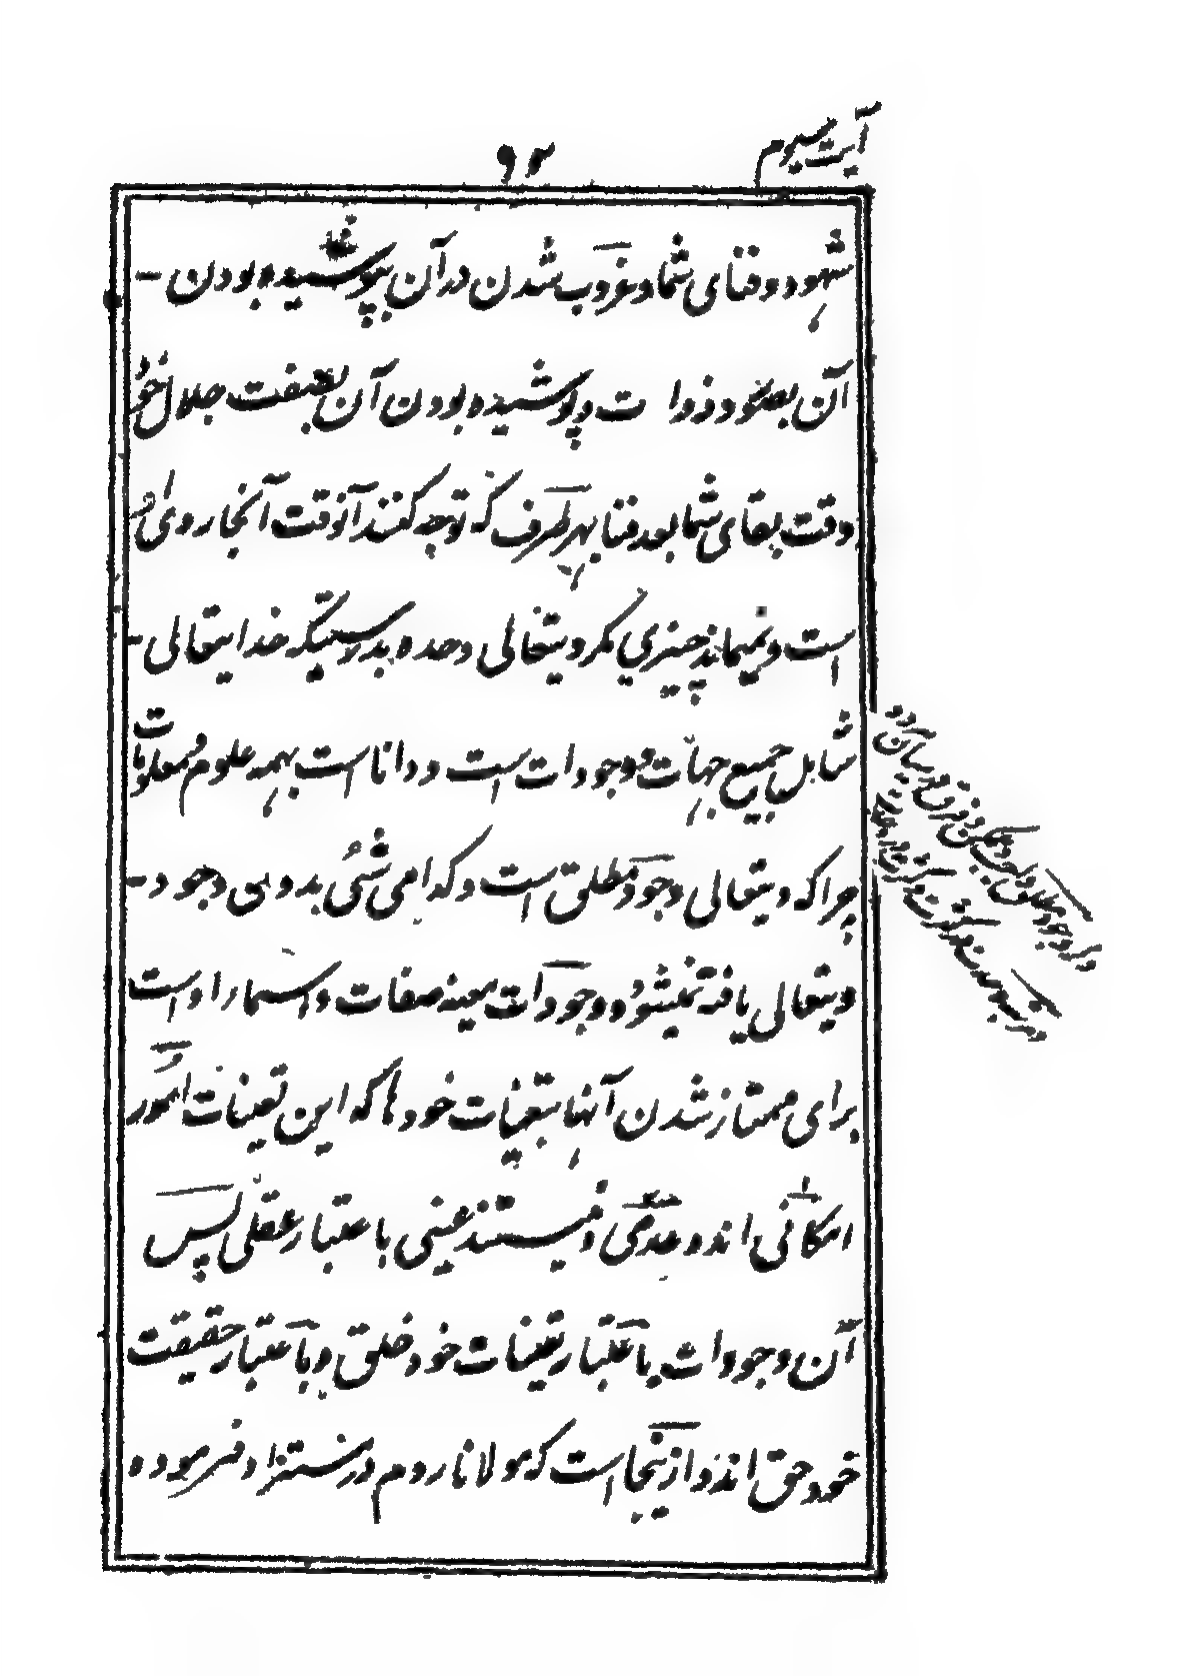 آیت سیوم
۹۲
شهود و فنای شما و غروب شدن در آن بپوشیده بودن -
آن بصور و ذوات و پوشیده بودن آن بصفت جلال خود
وقت بقای شما بعد فنا بهر طرف که توجه کنند آنوقت آنجا روی او
است و نمیماند چیزی مگر ویتعالی وحده بدرستیکه خدایتعالی -
شامل جمیع جهات و وجودات است و دانا است بهمه علوم و معلومات
چرا که ویتعالی وجود مطلق است و کدامی شئی بدون وجود -
ویتعالی یافته نمیشود و وجودات معینه صفات و اسما را و است
برای ممتاز شدن آنها بتعینات خودها که این تعینات امور
امکانی اند و عدمی و نیستند عینی باعتبار عقلی پس
آن وجودات باعتبار تعینات خود خلق و باعتبار حقیقت
خود حق اند و ازینجا است که مولانا روم در مستزاد فرموده